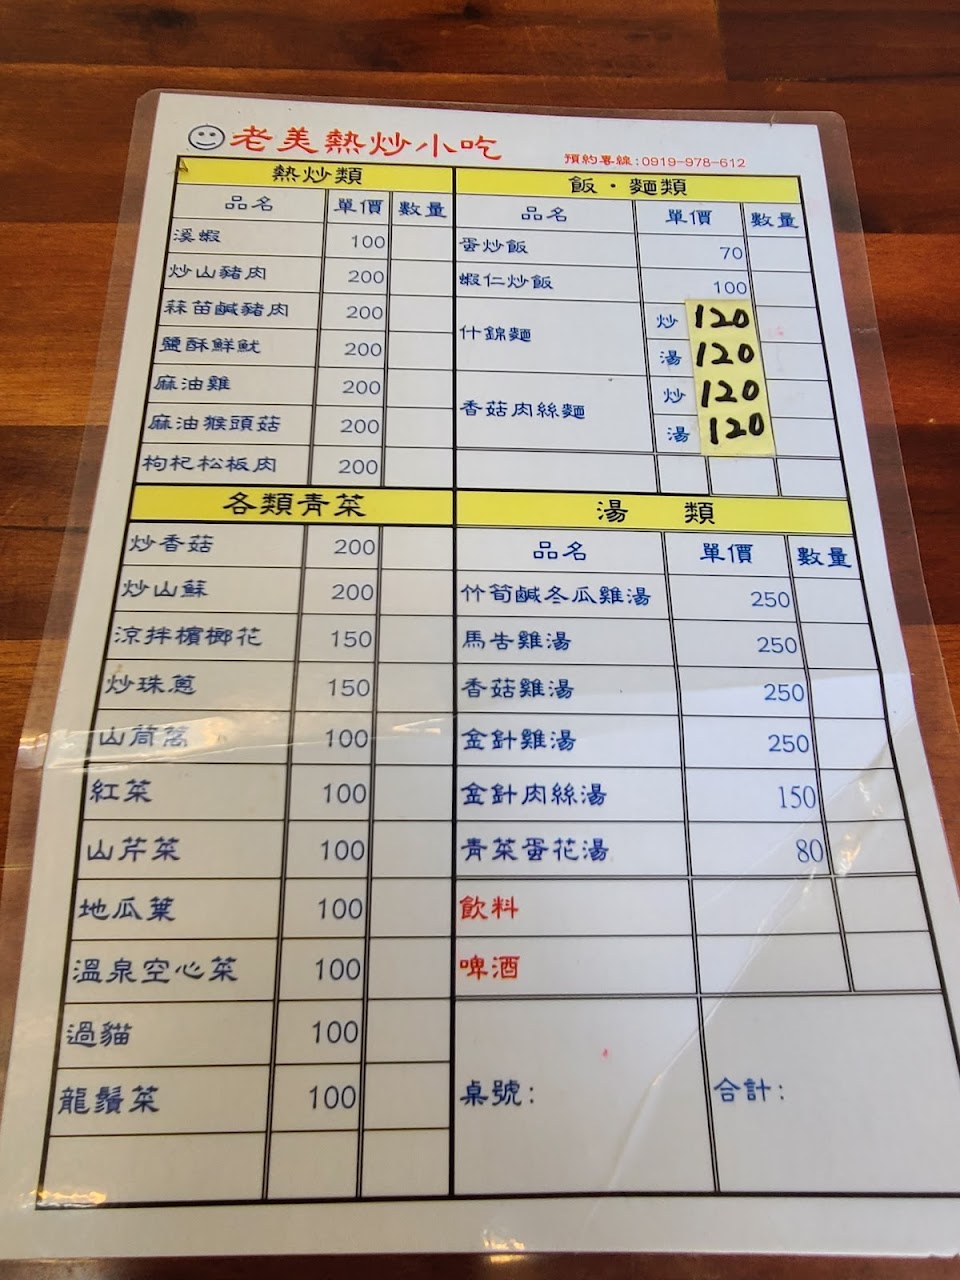 老美熱炒小吃
預約專線:0919-978-612
熱炒類
品名 單價 數量
溪蝦 100
炒山豬肉 200
蒜苗鹹豬肉 200
鹽酥鮮魷 200
麻油雞 200
麻油猴頭菇 200
枸杞松板肉 200
各類青菜
炒香菇 200
炒山蘇 200
涼拌檳榔花 150
炒珠蔥 150
山茼蒿 100
紅菜 100
山芹菜 100
地瓜葉 100
溫泉空心菜 100
過貓 100
龍鬚菜 100
飯·麵類
品名 單價 數量
蛋炒飯 70
蝦仁炒飯 100
什錦麵 炒 120
湯 120
香菇肉絲麵 炒 120
湯 120
湯 類
品名 單價 數量
竹筍鹹冬瓜雞湯 250
馬告雞湯 250
香菇雞湯 250
金針雞湯 250
金針肉絲湯 150
青菜蛋花湯 80
飲料
啤酒
桌號: 合計: